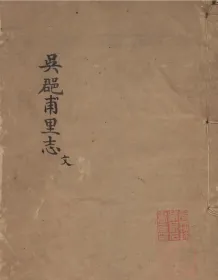 吳郡甫里志
文